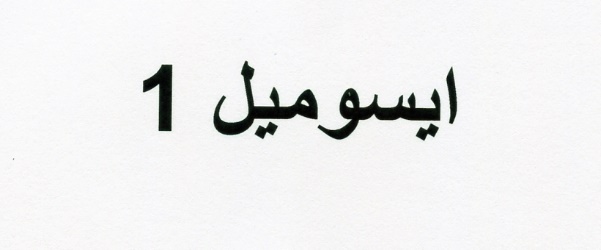 ايسوميل 1